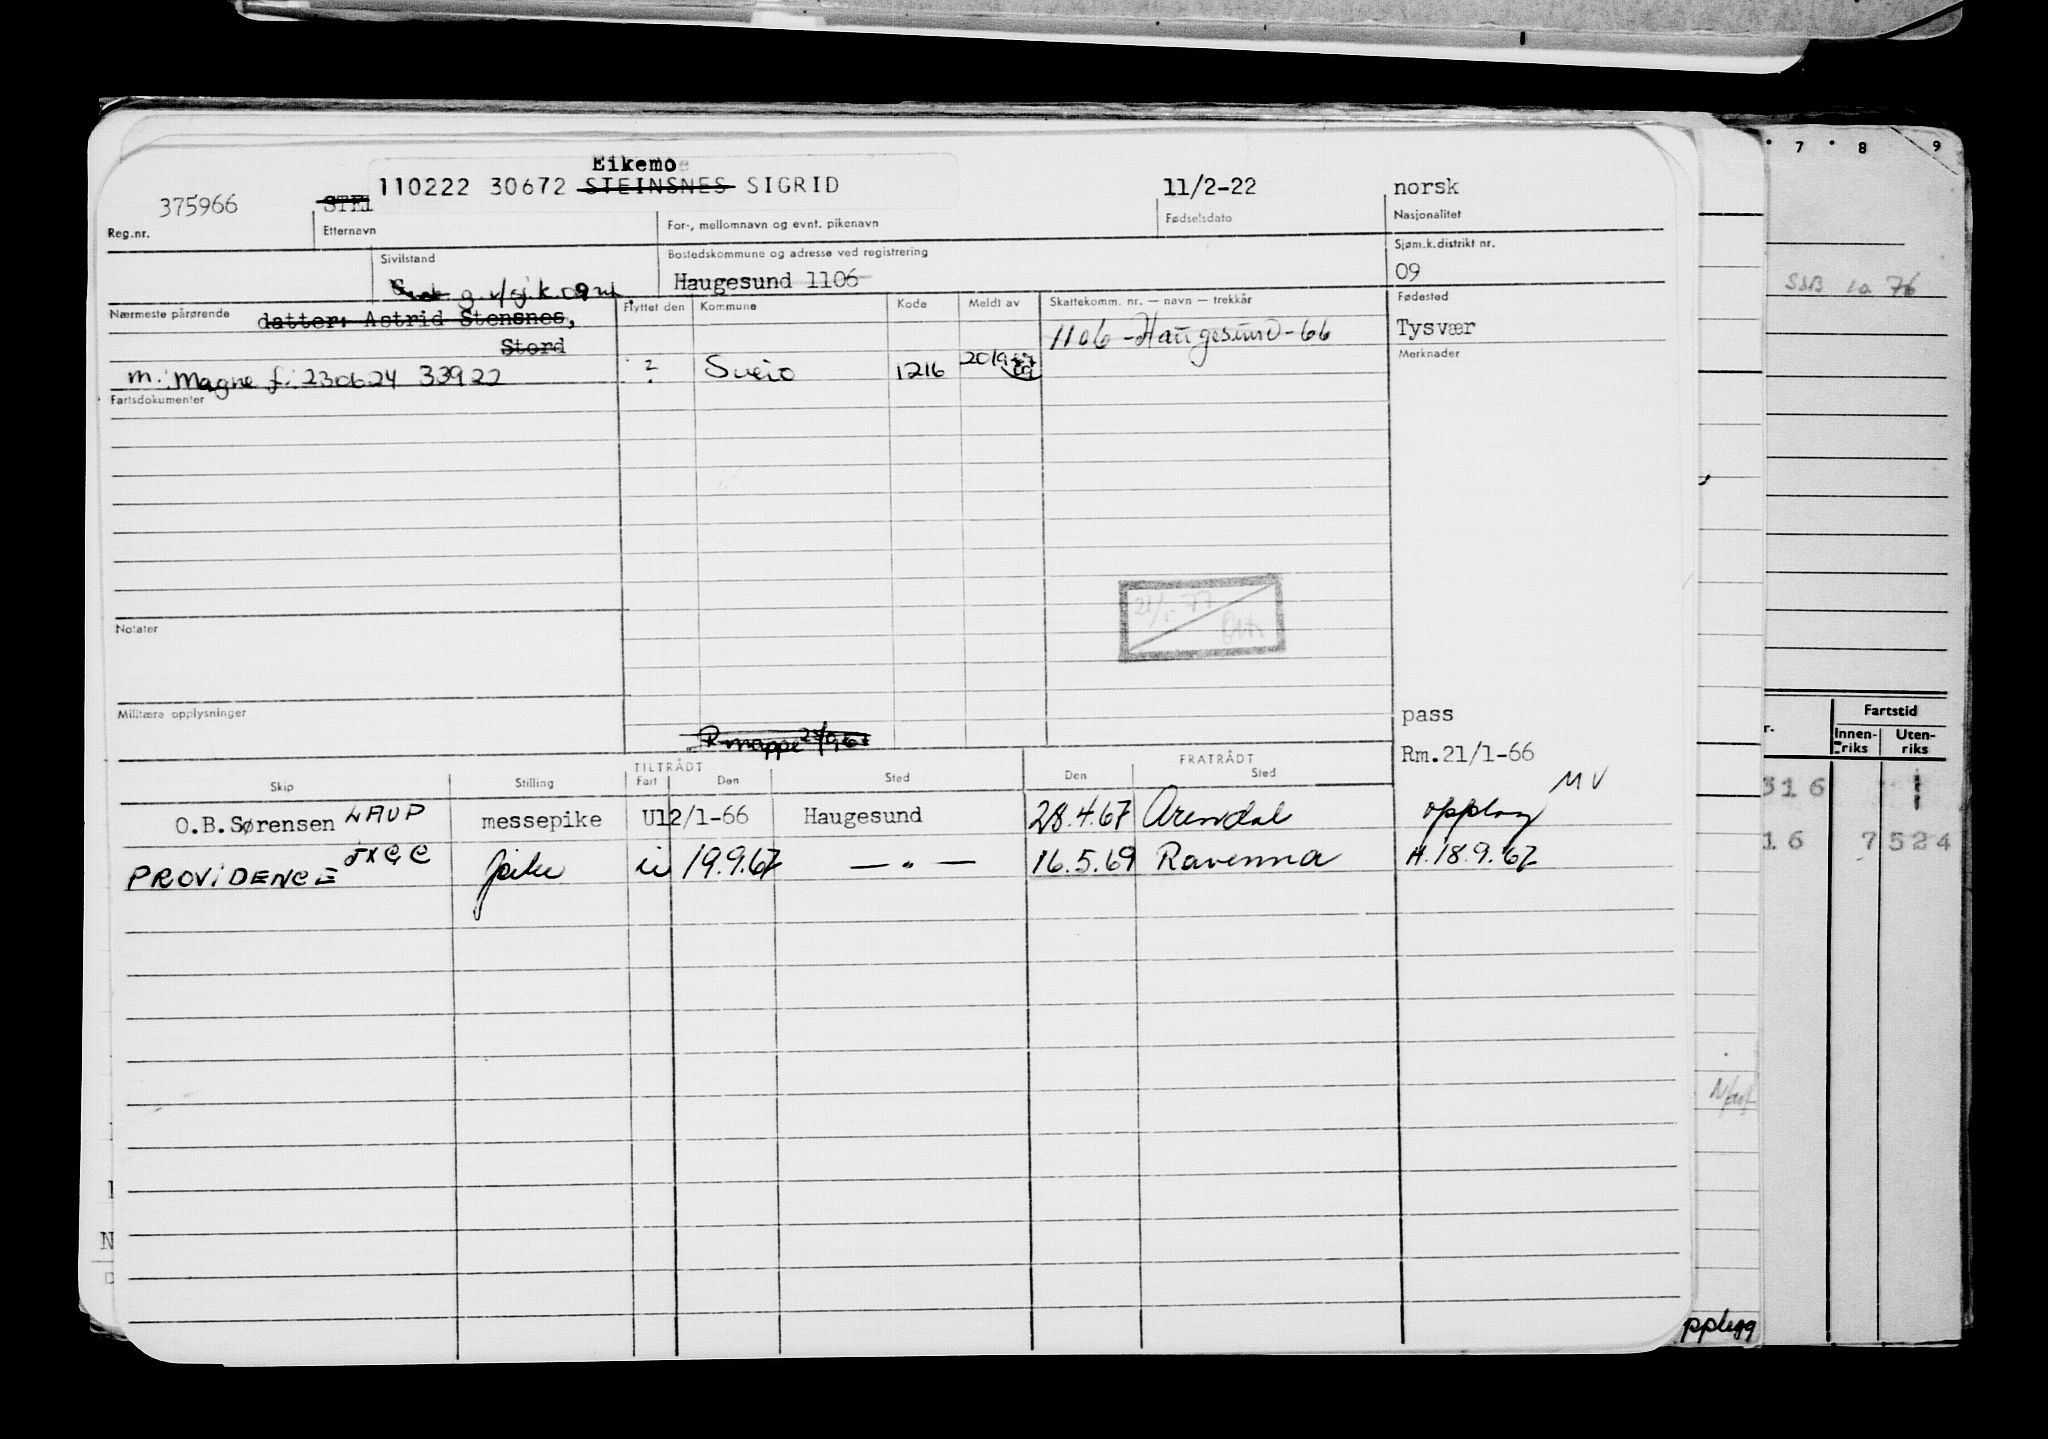 7 8 9
Eikemoe
375966 STEI 110222 30672 STEINSNES SIGRID 11/2-22 norsk
Reg.nr. Etternavn For-, mellomnavn og evnt. pikenavn Fødselsdato Nasjonalitet
Sivilstand Bostedskommune og adresse ved registrering Sjøm.k.distrikt nr.
g. v/sj.k. 09 Haugesund 1106 09
SSB 10 76
Nærmeste pårørende Flyttet den Kommune Kode Meldt av Skattekomm. nr. — navn — trekkår Fødested
datter: Astrid Stensnes, 1106 - Haugesund - 66 Tysvær
Stord Merknader
m: Magne f: 230624 33922 ? Sveio 1216
Fartsdokumenter
Notater
Militære opplysninger pass
R-mappe
Rm.21/1-66
TILTRÅDT FRATRÅDT
Skip Stilling Fart Den Sted Den Sted
r. Fartstid
Innen-riks Uten-riks
O.B.Sørensen LAUP messepike U 12/1-66 Haugesund 28.4.67 Arendal opplag MV
PROVIDENCE JXCC pike u 19.9.67 — " — 16.5.69 Ravenna H.18.9.67
316 1
16 7524
pplegg